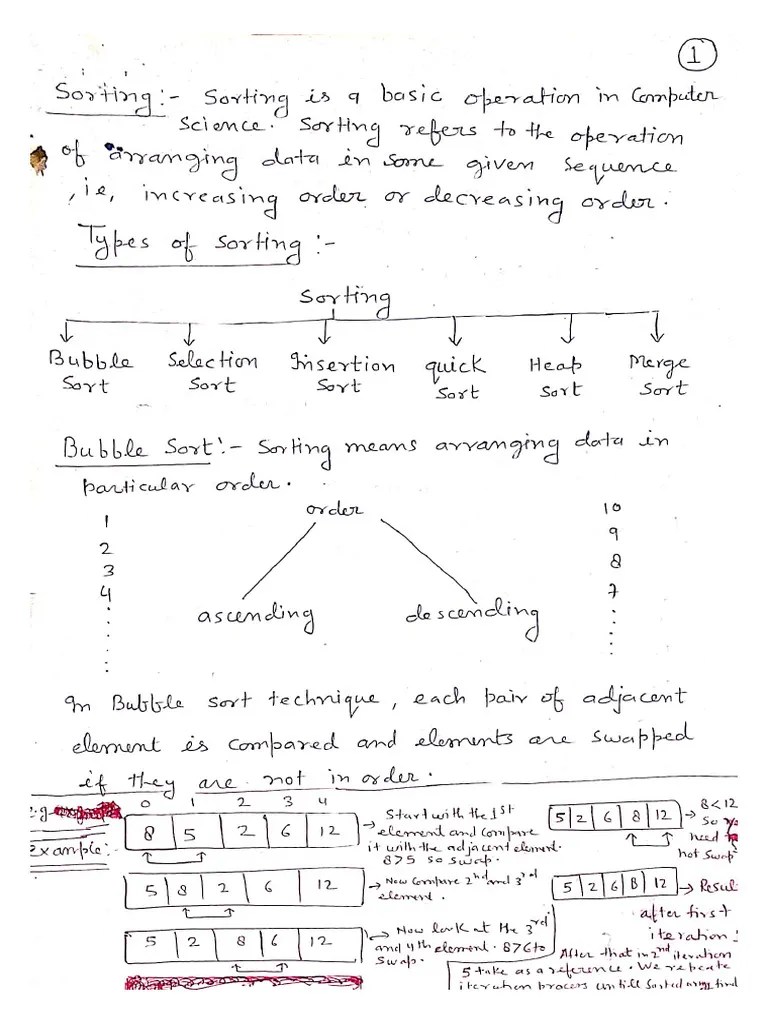 1
Sorting :- Sorting is a basic operation in Computer
Science. Sorting refers to the operation
of arranging data in some given sequence
, ie, increasing order or decreasing order.
Types of Sorting :-
Sorting
Bubble Sort
Selection Sort
Insertion Sort
quick Sort
Heap Sort
Merge Sort
Bubble Sort :- Sorting means arranging data in
particular order.
order
1
2
3
4
ascending
descending
10
9
8
7
In Bubble sort technique, each pair of adjacent
element is compared and elements are swapped
if they are not in order.
Example:-
0 1 2 3 4
8 5 2 6 12
→ Start with the 1st
element and compare
it with the adjacent element.
875 so swap.
5 8 2 6 12
→ Now compare 2nd and 3rd
element.
5 2 8 6 12
→ Now look at the 3rd
and 4th element. 876 to
swap.
5 2 6 8 12
→ 8<12
so
need
not swap
5 2 6 8 12
→ Resul
after first
iteration:
After that in 2nd iteration
5 take as a reference. We repeate
iteration process untill sorted find